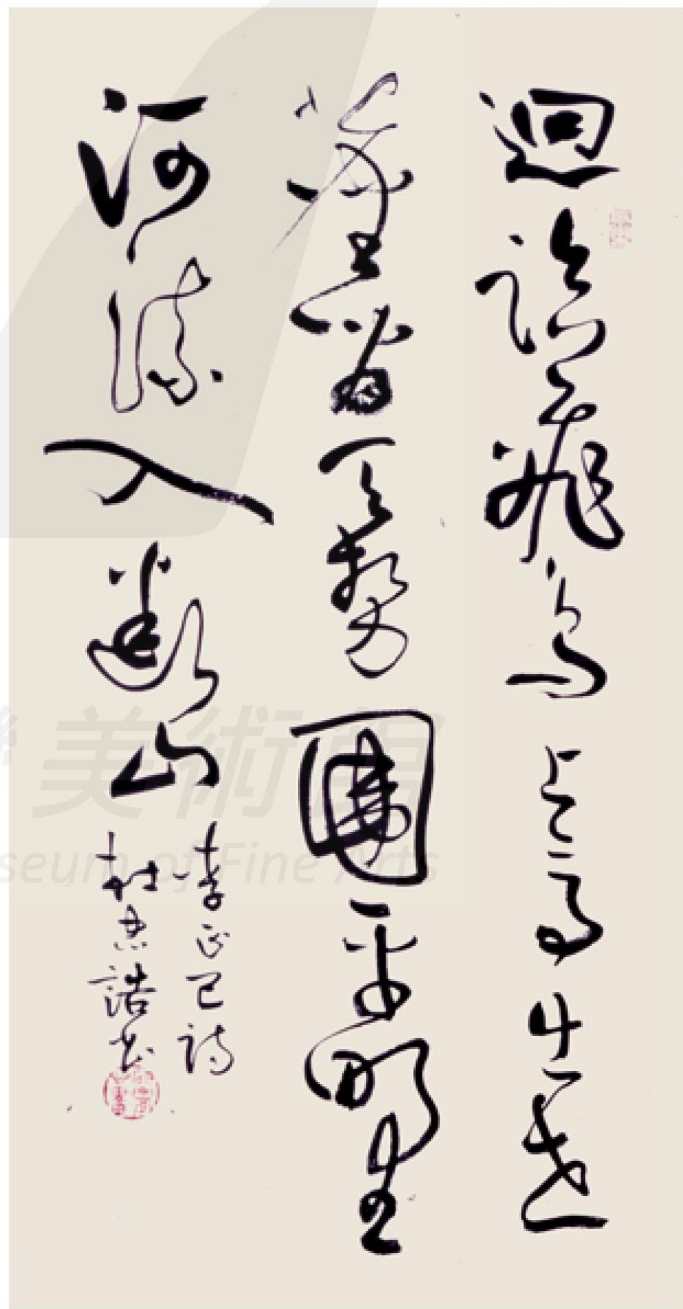 迥臨飛鳥上高出世
塵間天勢圍平野
河流入斷山
李正己詩
杜忠誥書
美術館
seum of Fine Arts